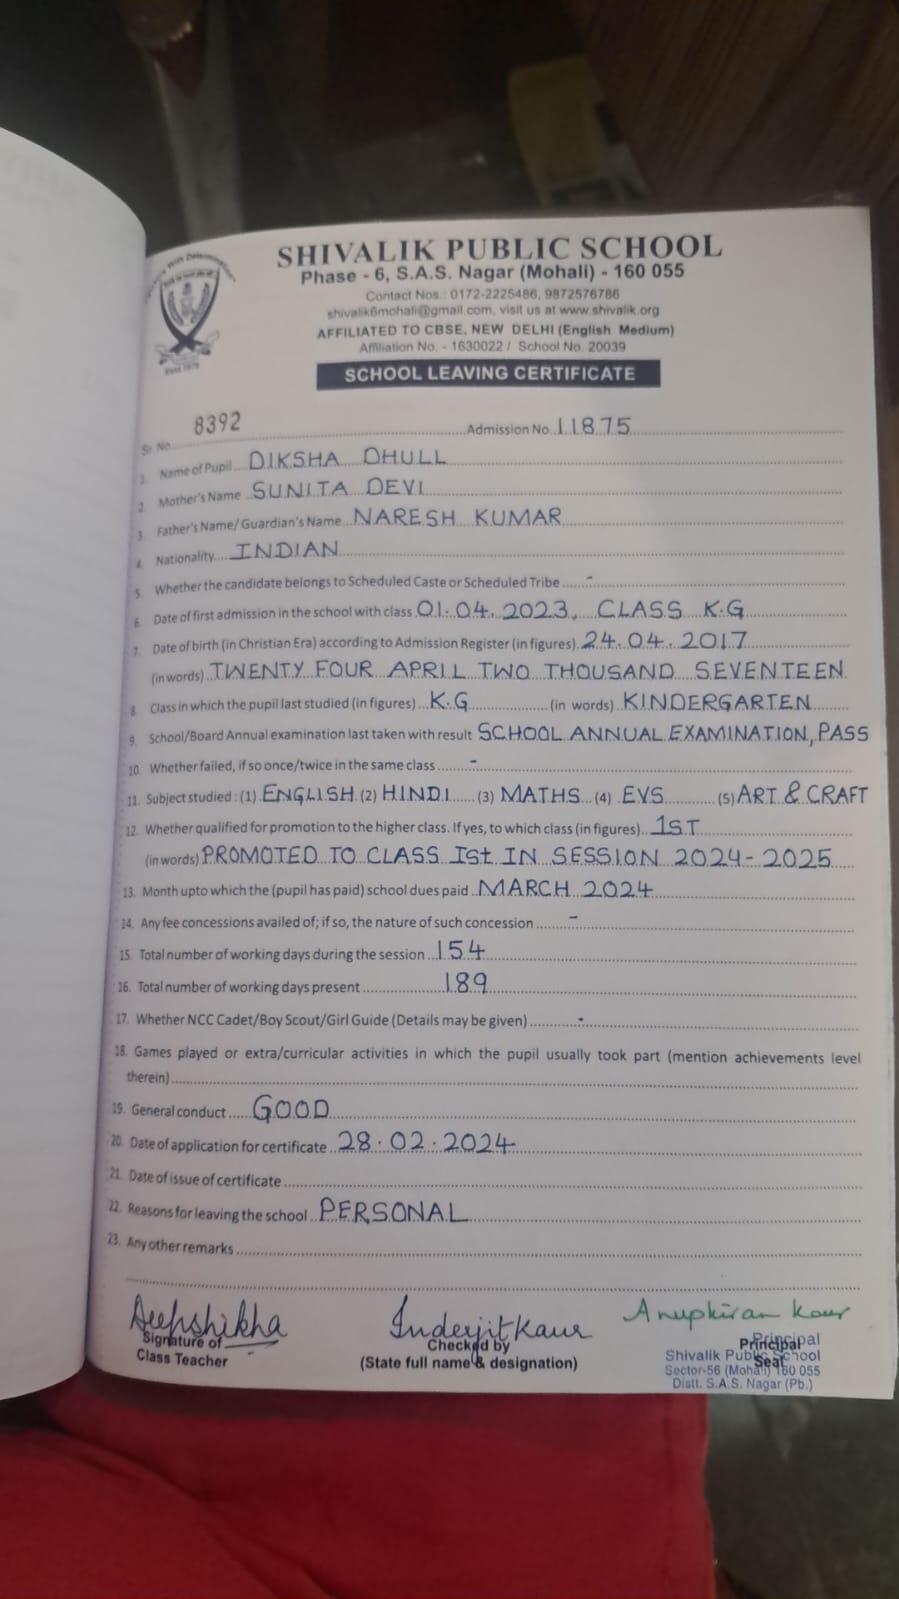 SHIVALIK PUBLIC SCHOOL
Phase - 6, S.A.S. Nagar (Mohali) - 160 055
Contact Nos.: 0172-2225486, 9872576786
shivalik6mohali@gmail.com, visit us at www.shivalik.org
AFFILIATED TO CBSE, NEW DELHI (English Medium)
Affiliation No. - 1630022 / School No. 20039
SCHOOL LEAVING CERTIFICATE
Sr. No. 8392 Admission No. 11875
1. Name of Pupil DIKSHA DHULL
2. Mother's Name SUNITA DEVI
3. Father's Name/ Guardian's Name NARESH KUMAR
4. Nationality INDIAN
5. Whether the candidate belongs to Scheduled Caste or Scheduled Tribe -
6. Date of first admission in the school with class 01.04.2023, CLASS K.G
7. Date of birth (in Christian Era) according to Admission Register (in figures) 24.04.2017
(in words) TWENTY FOUR APRIL TWO THOUSAND SEVENTEEN
8. Class in which the pupil last studied (in figures) K.G (in words) KINDERGARTEN
9. School/Board Annual examination last taken with result SCHOOL ANNUAL EXAMINATION, PASS
10. Whether failed, if so once/twice in the same class -
11. Subject studied : (1) ENGLISH (2) HINDI (3) MATHS (4) EVS (5) ART & CRAFT
12. Whether qualified for promotion to the higher class. If yes, to which class (in figures) 1ST
(in words) PROMOTED TO CLASS Ist IN SESSION 2024-2025
13. Month upto which the (pupil has paid) school dues paid MARCH 2024
14. Any fee concessions availed of; if so, the nature of such concession -
15. Total number of working days during the session 154
16. Total number of working days present 189
17. Whether NCC Cadet/Boy Scout/Girl Guide (Details may be given) -
18. Games played or extra/curricular activities in which the pupil usually took part (mention achievements level
therein)
19. General conduct GOOD
20. Date of application for certificate 28.02.2024
21. Date of issue of certificate
22. Reasons for leaving the school PERSONAL
23. Any other remarks
Deepshikha Inderjit Kaur Anupkiran Kaur
Signature of Checked by Principal Principal
Class Teacher (State full name & designation) Shivalik Public School
Seal
Sector-56 (Mohali) 160 055
Distt. S.A.S. Nagar (Pb.)